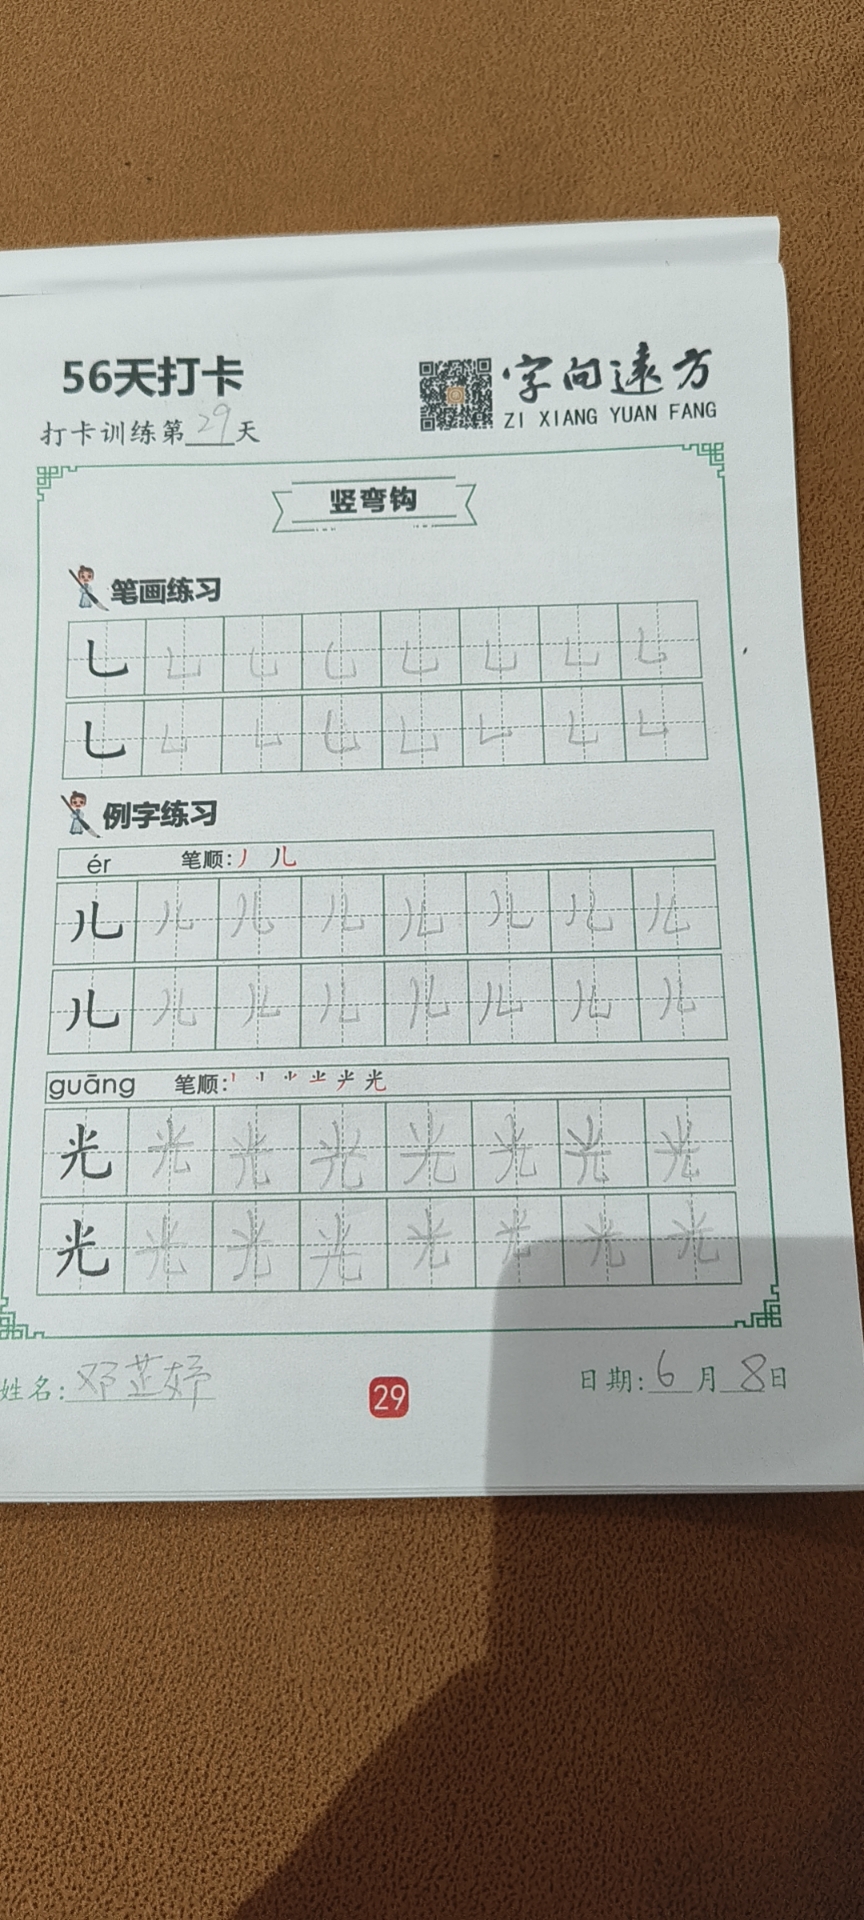 56天打卡
字向远方
ZI XIANG YUAN FANG
打卡训练第29天
竖弯钩
笔画练习
乚 乚 乚 乚 乚 乚 乚 乚
乚 乚 乚 乚 乚 乚 乚 乚
例字练习
ér 笔顺: 丿 儿
儿 儿 儿 儿 儿 儿 儿 儿
儿 儿 儿 儿 儿 儿 儿 儿
guāng 笔顺:
光 光 光 光 光 光 光 光
光 光 光 光 光 光 光 光
姓名: 邓芷妤
29
日期: 6月8日